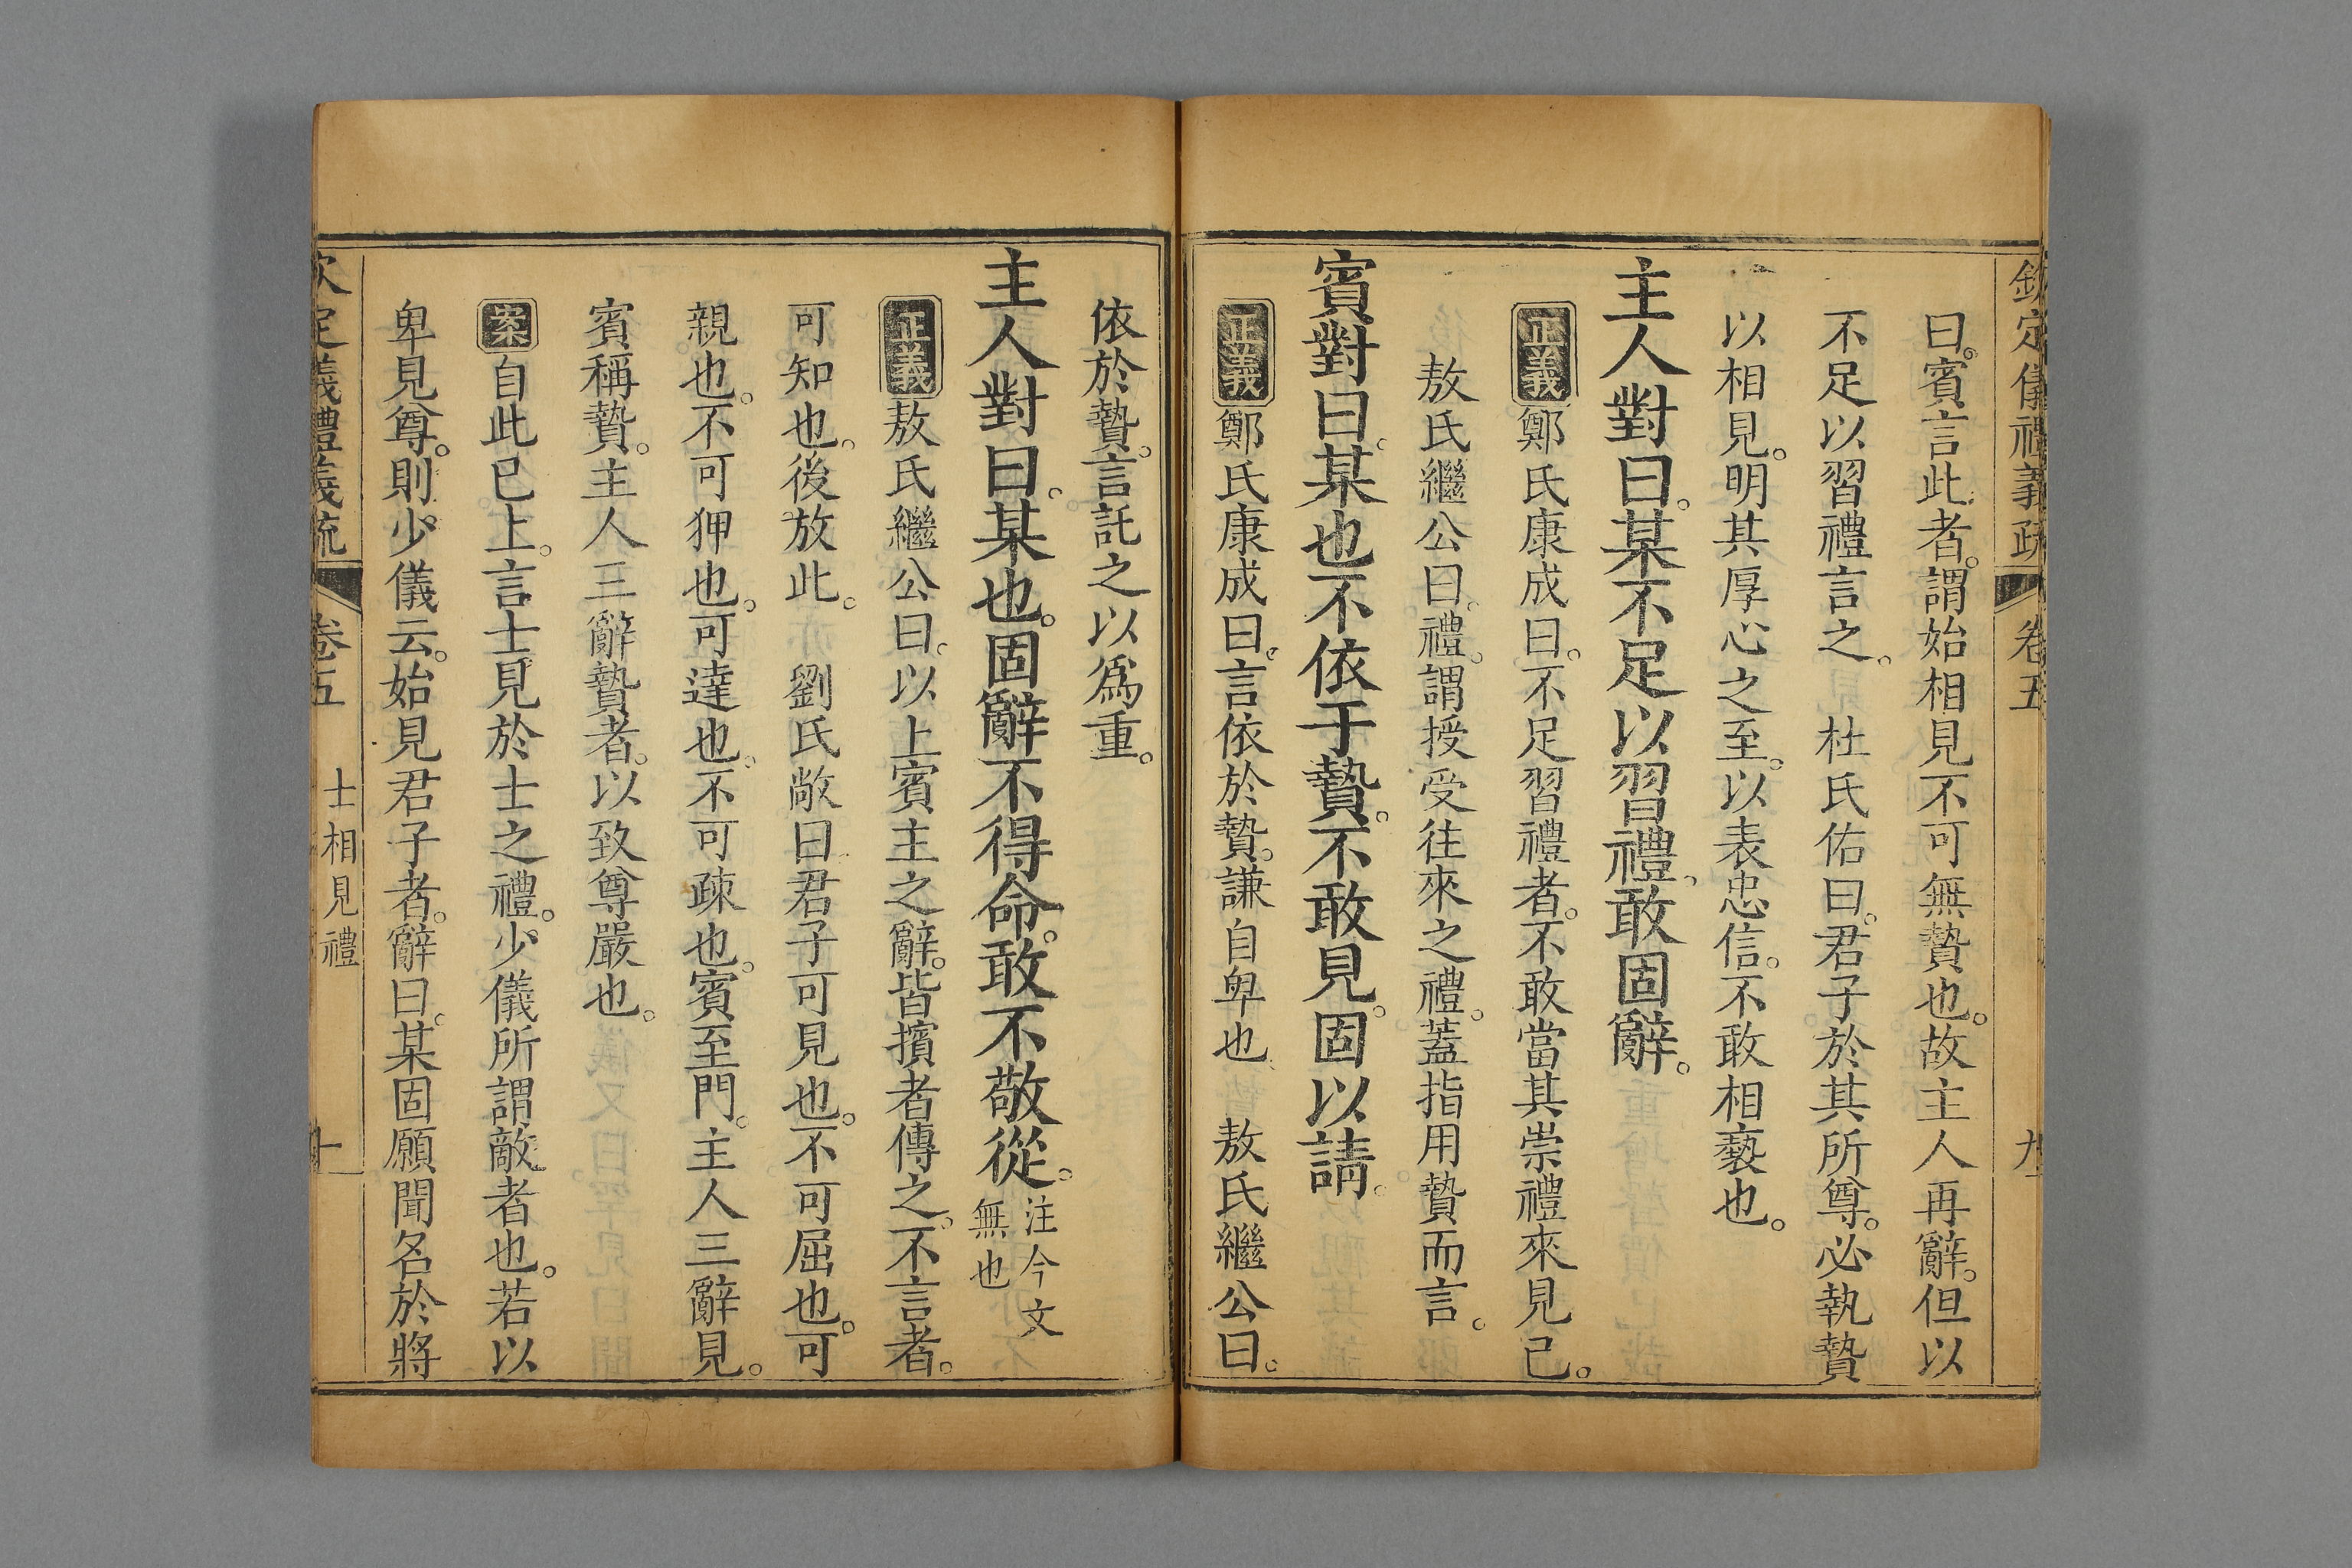 欽定儀禮義疏 卷五 九
曰。賓言此者。謂始相見不可無贄也。故主人再辭。但以
不足以習禮言之。 杜氏佑曰。君子於其所尊。必執贄
以相見。明其厚心之至。以表忠信。不敢相褻也。
主人對曰。某不足以習禮。敢固辭。
正義鄭氏康成曰。不足習禮者。不敢當其崇禮來見已。
敖氏繼公曰。禮。謂授受往來之禮。蓋指用贄而言。
賓對曰。某也不依于贄。不敢見。固以請。
正義鄭氏康成曰。言依於贄。謙自卑也。 敖氏繼公曰。
依於贄。言託之以爲重。
主人對曰。某也。固辭不得命。敢不敬從。注今文
無也
正義敖氏繼公曰。以上賓主之辭。皆擯者傳之。不言者。
可知也。後放此。 劉氏敞曰。君子可見也。不可屈也。可
親也。不可狎也。可達也。不可疎也。賓至門。主人三辭見。
賓稱贄。主人三辭贄者。以致尊嚴也。
案自此已上。言士見於士之禮。少儀所謂敵者也。若以
卑見尊。則少儀云。始見君子者。辭曰。某固願聞名於將
欽定儀禮義疏 卷五 士相見禮 十